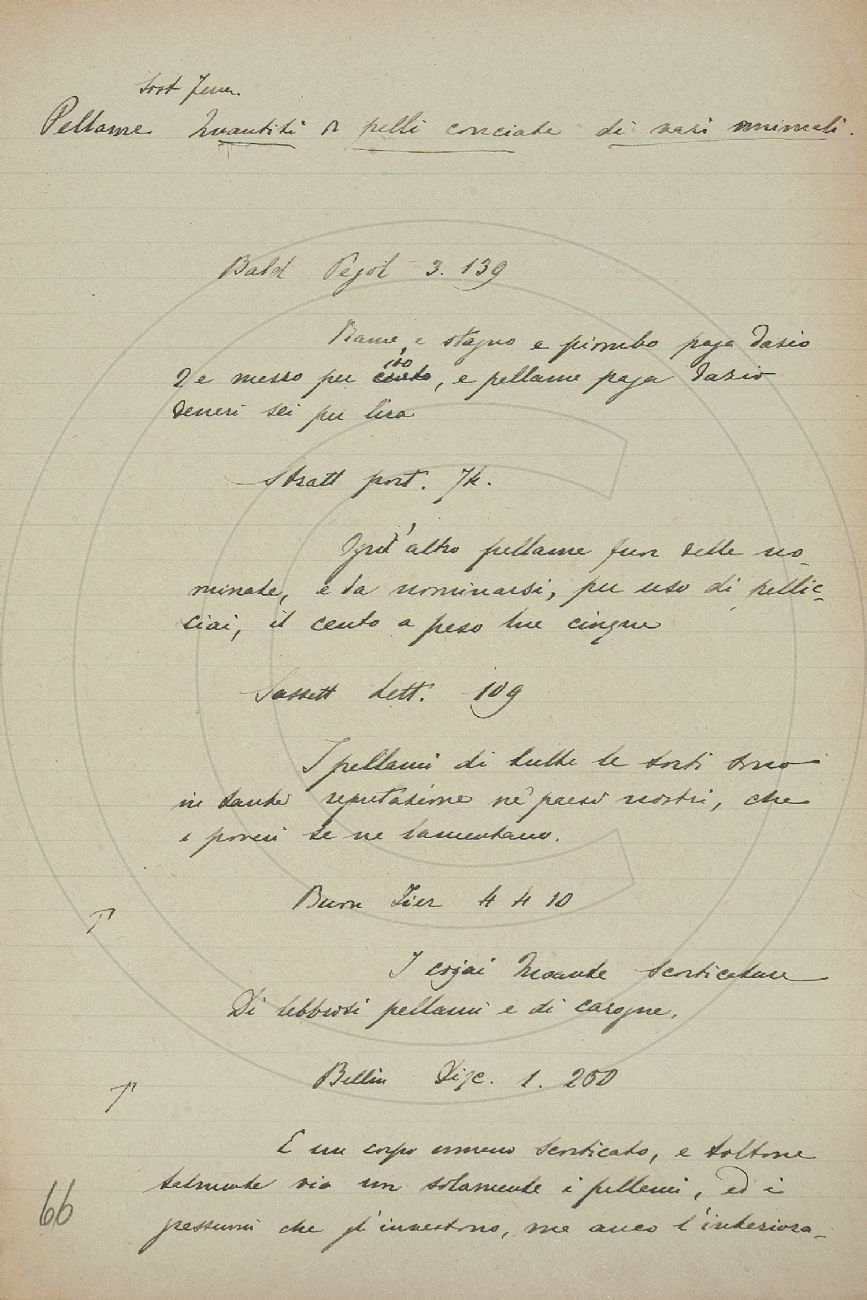 Sost. Fem.
Pellame Quantità di pelli conciate di vari animali.
Bald Pegol 3. 139
Rame, e stagno e piombo paga dazio
2 e mezzo per 100 cento, e pellame paga dazio
deneri sei per lira
Stratt port. 74.
Ogni altro pellame fuor delle no-
minate, e da nominarsi, per uso di pellic-
ciai, il cento a peso lire cinque
Sassett Lett. 109
I pellami di tutte le sorti sono
in tanta reputazione ne' paesi nostri, che
i poveri se ne lamentano.
Buon Fier 4 4 10
I cojai Quante scorticature
Di lebbrosi pellami e di carogne.
Bellin Disc. 1. 200
E un corpo umano scorticato, e toltone
talmente via non solamente i pellami, ed i
grassumi che gl'investono, ma anco l'interiora-
66